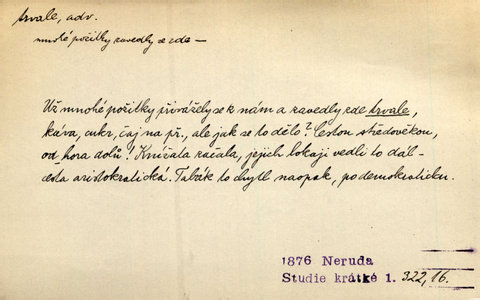 trvale, adv.
mnohé požitky zavedly se zde —
Už mnohé požitky přivážely se k nám a zavedly zde trvale,
káva, cukr, čaj na př., ale jak se to dělo? Cestou středověkou,
od hora dolů! Knížata začala, jejich lokaji vedli to dál –
cesta aristokratická. Tabák to chytl naopak, po demokraticku.
1876 Neruda
Studie krátké 1. 322,16.